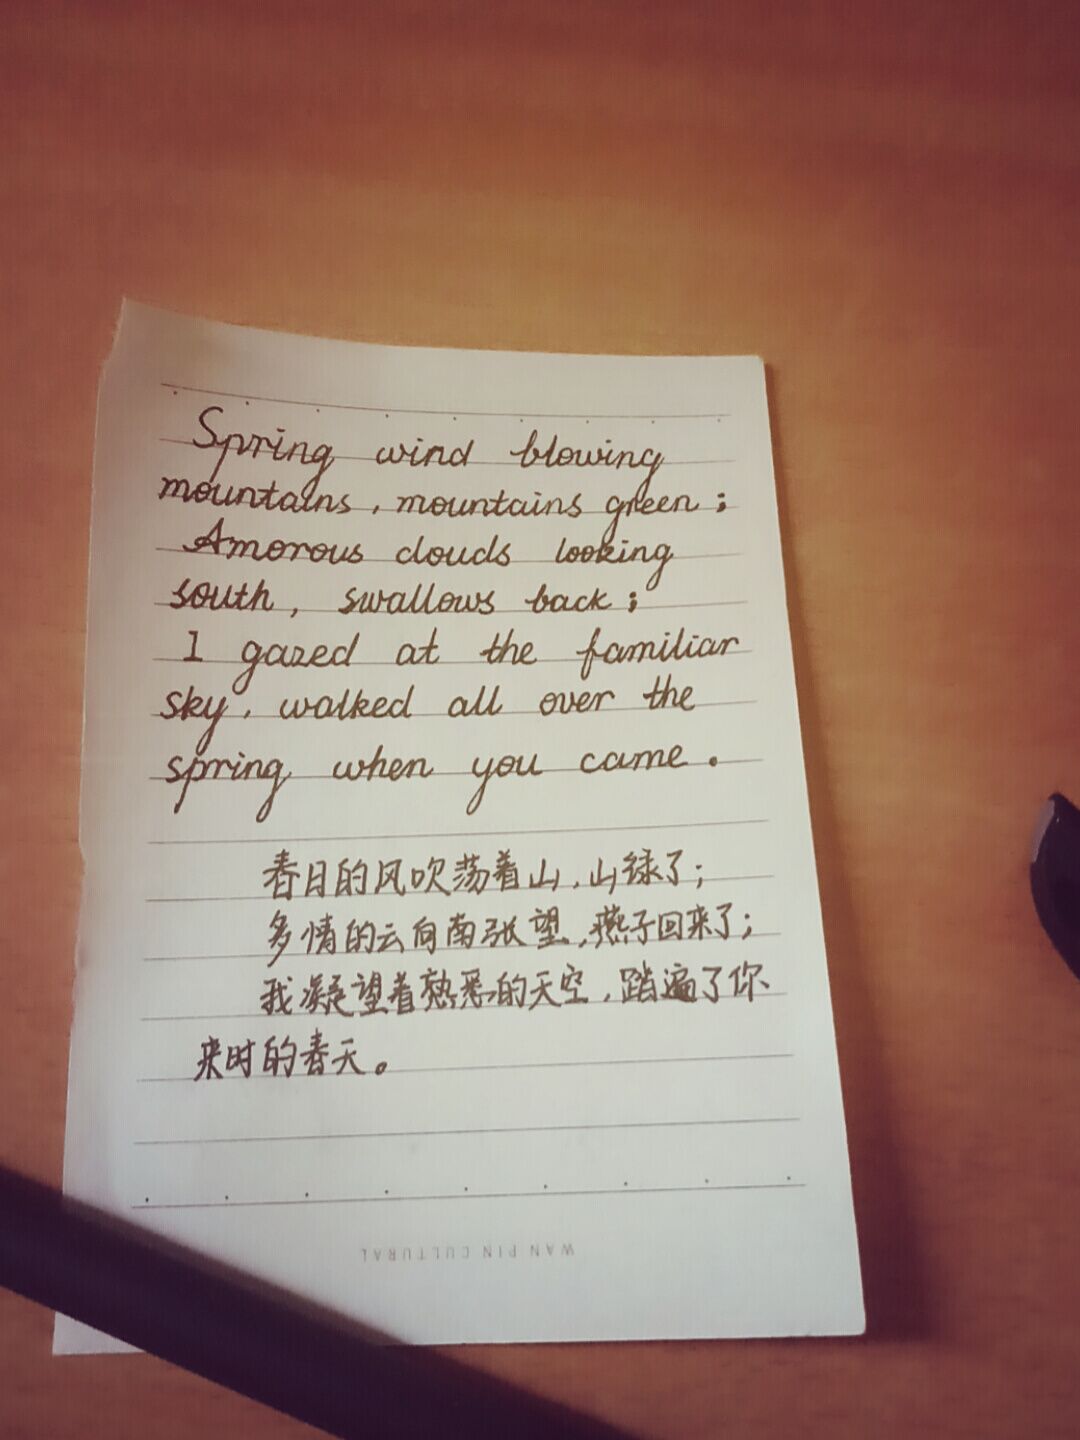 Spring wind blowing
mountains, mountains green;
Amorous clouds looking
south, swallows back;
I gazed at the familiar
sky, walked all over the
spring when you came.
春日的风吹荡着山,山绿了;
多情的云向南张望,燕子回来了;
我凝望着熟悉的天空,踏遍了你
来时的春天。
WAN PIN CULTURAL